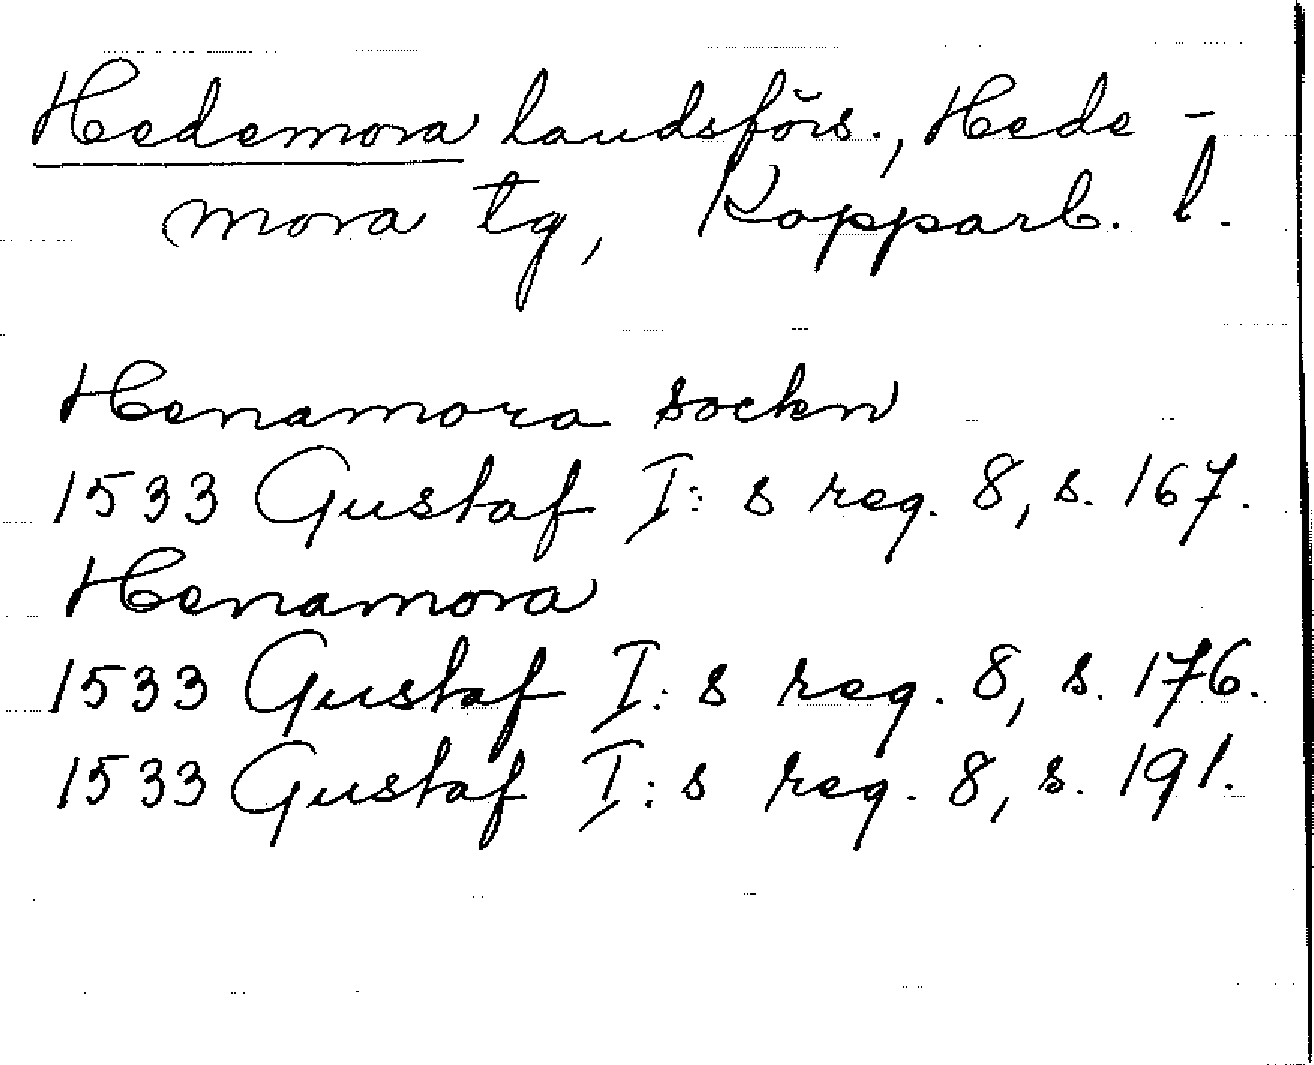 Hedemora landsförs., Hede-
mora tg, Kopparb. l.
Henamora sockn
1533 Gustaf I:s reg. 8, s. 167.
Henamora
1533 Gustaf I:s reg. 8, s. 176.
1533 Gustaf I:s reg. 8, s. 191.